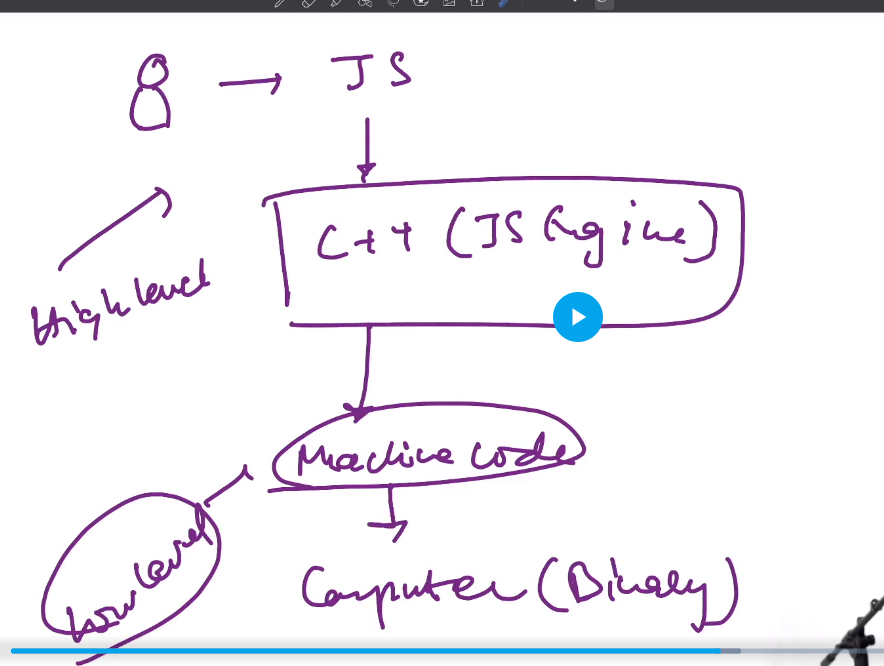 JS
C++ (JS Engine)
High level
Machine code
Low level
Computer (Binary)